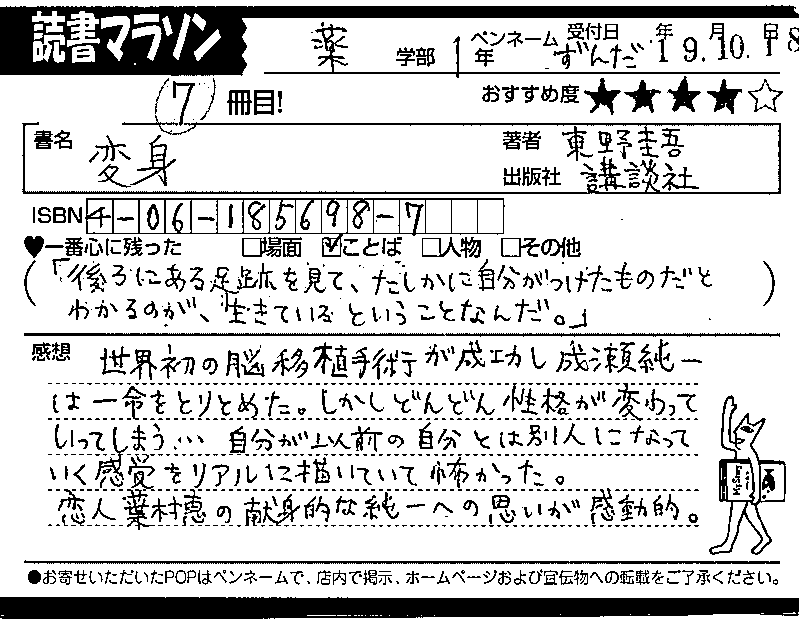 読書マラソン
薬 学部 1年 ペンネーム ずんだ 受付日 19年10月18日
7 冊目! おすすめ度 ★★★★☆
書名 変身 著者 東野圭吾
出版社 講談社
ISBN 4-06-185698-7
♥一番心に残った □場面 ☑ことば □人物 □その他
(「後ろにある足跡を見て、たしかに自分がつけたものだと
わかるのが、生きているということなんだ。」)
感想 世界初の脳移植手術が成功し成瀬純一
は一命をとりとめた。しかしどんどん性格が変わって
いってしまう… 自分が以前の自分とは別人になって
いく感覚をリアルに描いていて怖かった。
恋人葉村恵の献身的な純一への思いが感動的。
●お寄せいただいたPOPはペンネームで、店内で掲示、ホームページおよび宣伝物への転載をご了承ください。